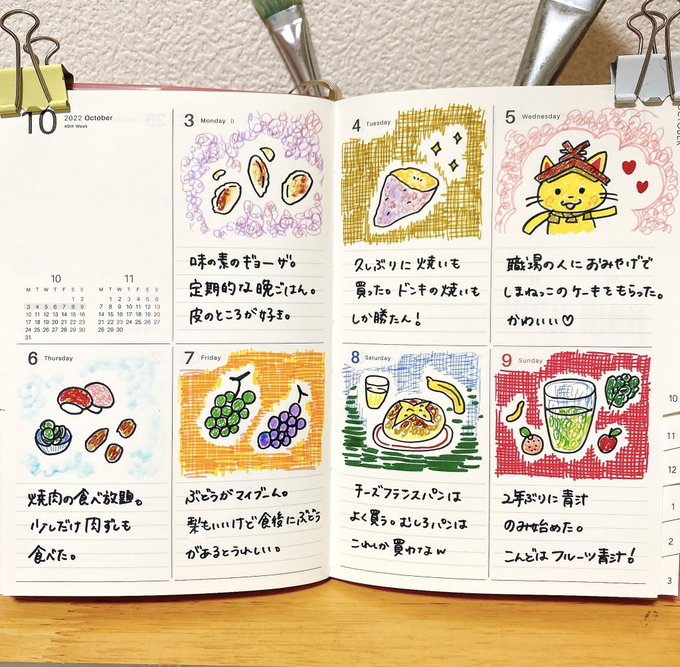 10
2022 October
40th Week
10
M T W T F S S
1 2
3 4 5 6 7 8 9
10 11 12 13 14 15 16
17 18 19 20 21 22 23
24 25 26 27 28 29 30
31
11
M T W T F S S
1 2 3 4 5 6
7 8 9 10 11 12 13
14 15 16 17 18 19 20
21 22 23 24 25 26 27
28 29 30
3 Monday
味の素のギョーザ。
定期的な晩ごはん。
皮のところが好き。
4 Tuesday
久しぶりに焼いも
買った。ドンキの焼いも
しか勝たん！
5 Wednesday
職場の人におみやげで
しまねっこのケーキをもらった。
かわいい♡
6 Thursday
焼肉の食べ放題。
少しだけ肉ずしも
食べた。
7 Friday
ぶどうがマイブーム。
梨もいいけど食後にぶどう
があるとうれしい。
8 Saturday
チーズフランスパンは
よく買う。むしろパンは
これしか買わなw
9 Sunday
2年ぶりに青汁
のみ始めた。
こんどはフルーツ青汁！
OCTOBER
10
11
12
1
2
3